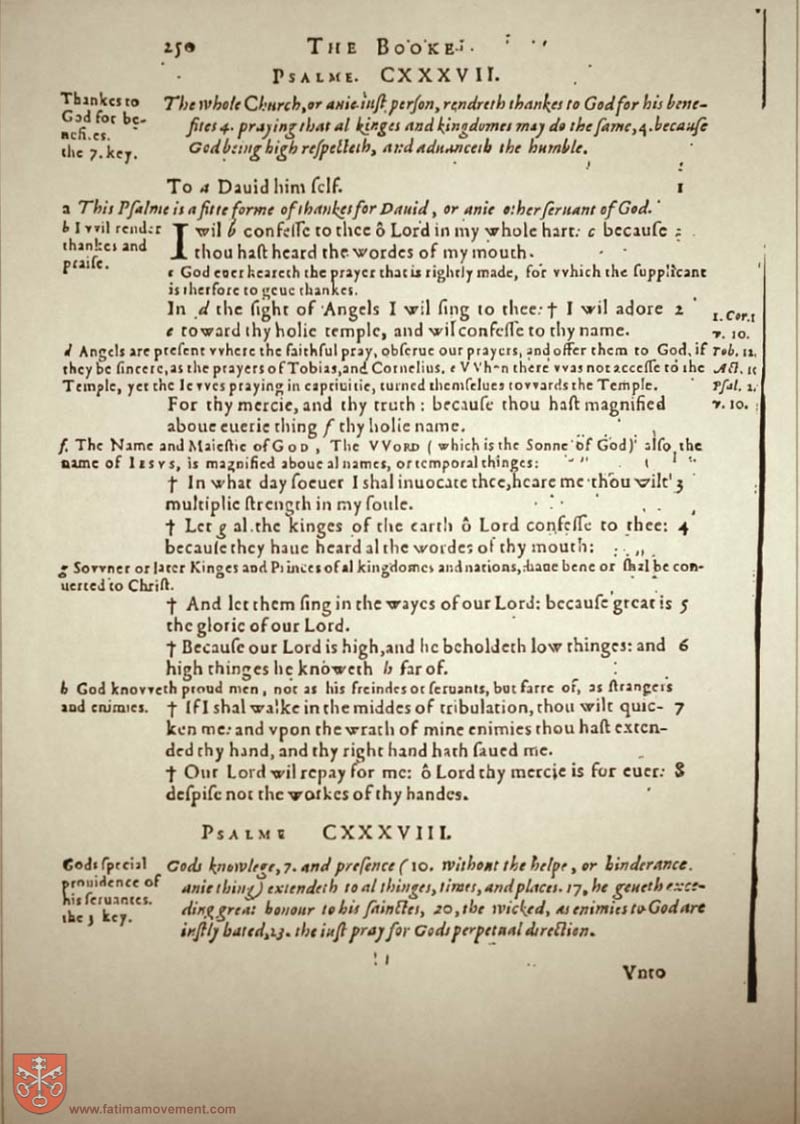 250 THE BOOKE
PSALME. CXXXVII.
Thankes to
God for be-
nefites.
the 7. key.
The whole Church, or anie iuſt perſon, rendreth thankes to God for his bene-
fites 4. praying that al kinges and kingdomes may do the ſame, 4. becauſe
God being high reſpecteth, and aduanceth the humble.
To a Dauid him ſelf. 1
a This Pſalme is a fitte forme of thankes for Dauid, or anie other ſeruant of God.
b I vvil render
thankes and
praiſe.
I wil b confeſſe to thee ô Lord in my whole hart: c becauſe
thou haſt heard the wordes of my mouth.
c God euer heareth the prayer that is rightly made, for vvhich the ſupplicant
is therfore to geue thankes.
In d the ſight of Angels I wil ſing to thee: † I wil adore 2
e toward thy holie temple, and wil confeſſe to thy name.
1. Cor. 1
v. 10.
d Angels are preſent vvhere the faithful pray, obſerue our prayers, and offer them to God, if Tob. 12.
they be ſincere, as the prayers of Tobias, and Cornelius. e VVhen there vvas not acceſſe to the Act. 10
Temple, yet the Ievves praying in captiuitie, turned themſelues tovvards the Temple. Pſal. 2.
For thy mercie, and thy truth: becauſe thou haſt magnified v. 10.
aboue euerie thing f thy holie name.
f. The Name and Maieſtie of GOD, The VVORD (which is the Sonne of God) alſo the
name of IESVS, is magnified aboue al names, or temporal thinges:
† In what day ſoeuer I shal inuocate thee, heare me: thou wilt 3
multiplie ſtrength in my ſoule.
† Let g al the kinges of the earth ô Lord confeſſe to thee: 4
becauſe they haue heard al the wordes of thy mouth:
g Sovvner or later Kinges and Princes of al kingdomes and nations, haue bene or ſhal be con-
uerted to Chriſt.
† And let them ſing in the wayes of our Lord: becauſe great is 5
the glorie of our Lord.
† Becauſe our Lord is high, and he beholdeth low thinges: and 6
high thinges he knoweth h far of.
h God knovveth proud men, not as his freindes or ſeruants, but farre of, as ſtrangers
and enimies. † If I shal walke in the middes of tribulation, thou wilt quic- 7
ken me: and vpon the wrath of mine enimies thou haſt exten-
ded thy hand, and thy right hand hath ſaued me.
† Our Lord wil repay for me: ô Lord thy mercie is for euer: 8
deſpiſe not the workes of thy handes.
PSALME CXXXVIII.
Gods ſpecial
prouidence of
his ſeruantes.
the 3 key.
Gods knowlege, 7. and preſence (10. without the helpe, or hinderance.
anie thing) extendeth to al thinges, times, and places. 17, he geueth exce-
ding great honour to his ſainctes, 20, the wicked, as enimies to God are
iuſtly hated, 23. the iuſt pray for Gods perpetual direction.
Vnto
www.fatimamovement.com